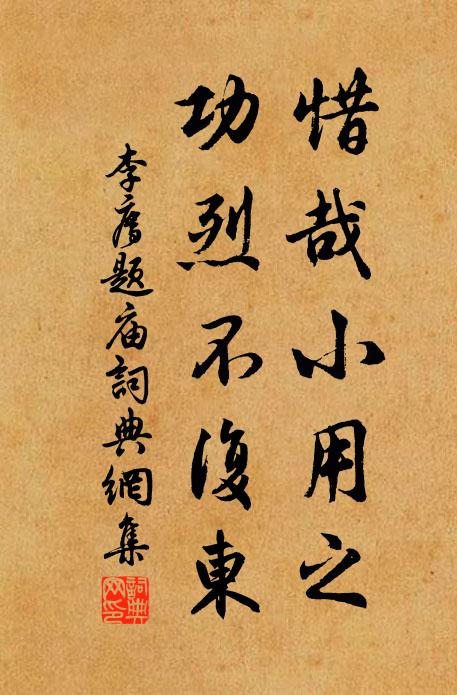 惜哉小用之
功烈不復東
李廌題庙詞典網集
詞典网印